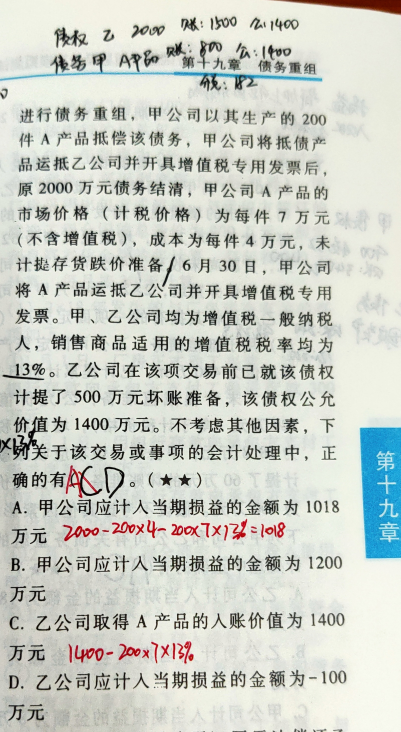 债权 乙 2000 账:1500 公:1400
债务 甲 A产品 账:800 公:1400
第十九章 债务重组
税:182
进行债务重组,甲公司以其生产的 200
件 A 产品抵偿该债务,甲公司将抵债产
品运抵乙公司并开具增值税专用发票后,
原 2000 万元债务结清,甲公司 A 产品的
市场价格(计税价格)为每件 7 万元
(不含增值税),成本为每件 4 万元,未
计提存货跌价准备,6 月 30 日,甲公司
将 A 产品运抵乙公司并开具增值税专用
发票。甲、乙公司均为增值税一般纳税
人,销售商品适用的增值税税率均为
13%。乙公司在该项交易前已就该债权
计提了 500 万元坏账准备,该债权公允
价值为 1400 万元。不考虑其他因素,下
×13%
列关于该交易或事项的会计处理中,正
确的有ACD。(★★)
A. 甲公司应计入当期损益的金额为 1018
万元 2000-200×4-200×7×13%=1018
B. 甲公司应计入当期损益的金额为 1200
万元
C. 乙公司取得 A 产品的入账价值为 1400
万元 1400-200×7×13%
D. 乙公司应计入当期损益的金额为-100
万元
第十九章